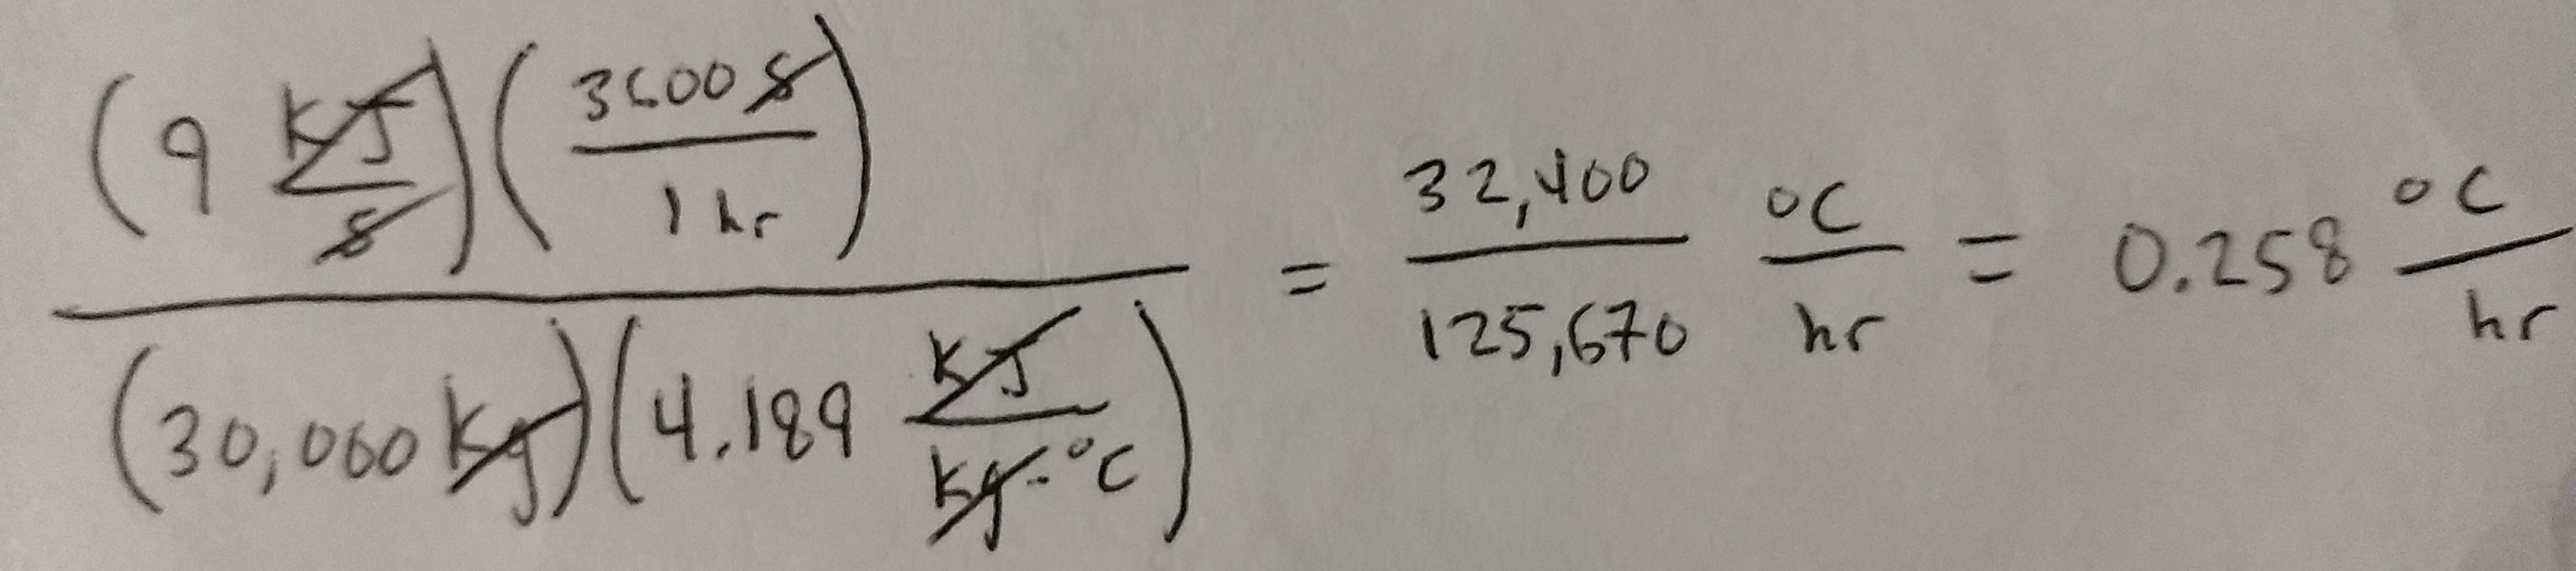 (9 kJ/s)(3600 s/1 hr)/(30,000 kg)(4.189 kJ/kg·°C) = 32,400/125,670 °C/hr = 0.258 °C/hr